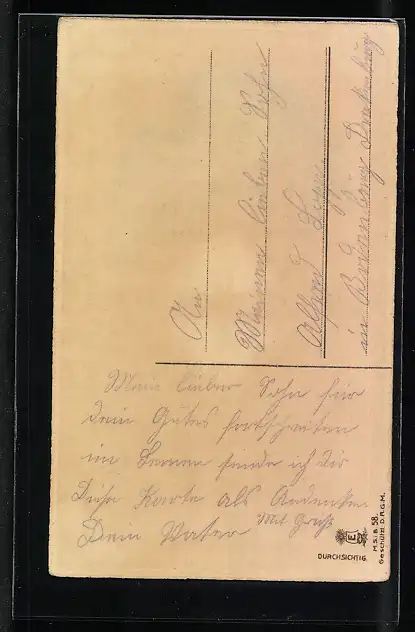 An
Meinen lieben Sohn
Alfred
in
Mein lieber Sohn für
dein Gutes fortschreiten
im Lernen sende ich dir
Diese Karte als Andenken
Dein Vater Mit Gruß
E
M.S.i.B. 58.
Geschützt D.R.G.M.
DURCHSICHTIG.